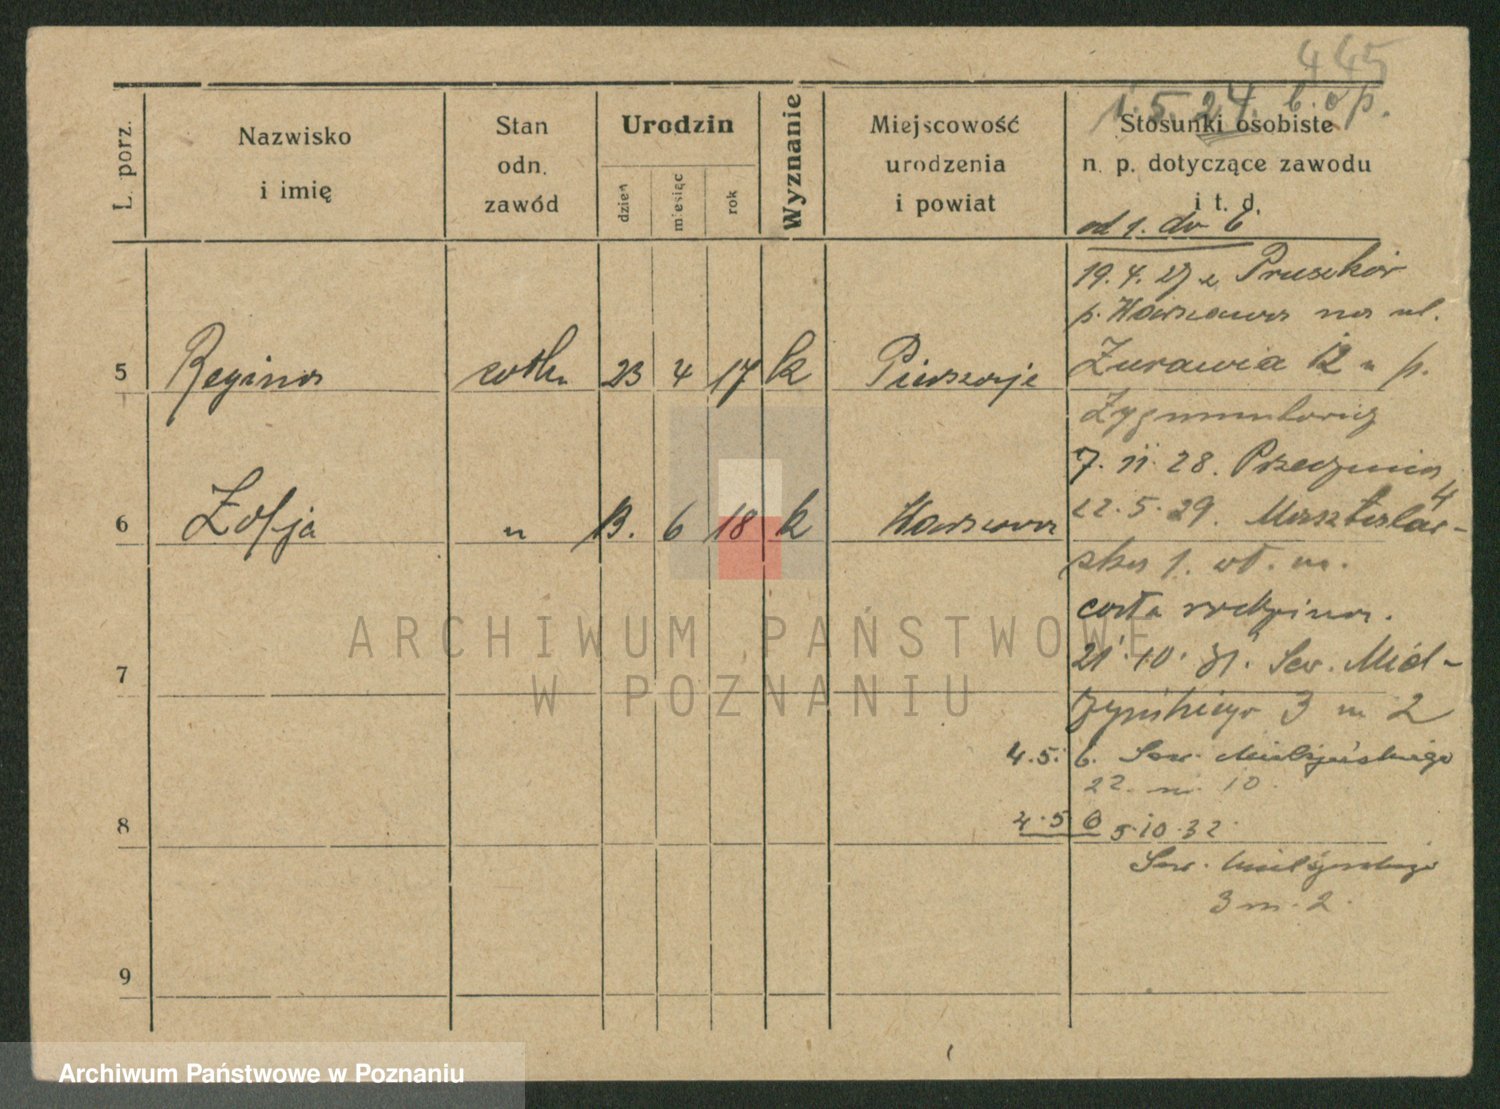 445
1.5.24. b. o p.
L. porz.
Nazwisko
i imię
Stan
odn.
zawód
Urodzin
dzień
miesiąc
rok
Wyznanie
Miejscowość
urodzenia
i powiat
Stosunki osobiste
n. p. dotyczące zawodu
i t. d.
od 1. do 6
19.4.27 z Pruszków
p. Warszawa na ul.
5 Regina 23 4 17 k
Żurawia 12 u p.
7.11.28. Przecznica 4
6 Zofja " 13. 6 18 k Warszawa
22.5.29. Masztalar-
ska 1. wł. m.
cała rodzina.
ARCHIWUM PAŃSTWOWE
W POZNANIU
7
21.10.31. Sew. Miel-
żyńskiego 3 m 2
4.5. 6. Sew. Mielżyńskiego
22 m. 10.
8
4.5 6 5.10.32.
Sew. Mielżyńskiego
3 m. 2.
9
Archiwum Państwowe w Poznaniu